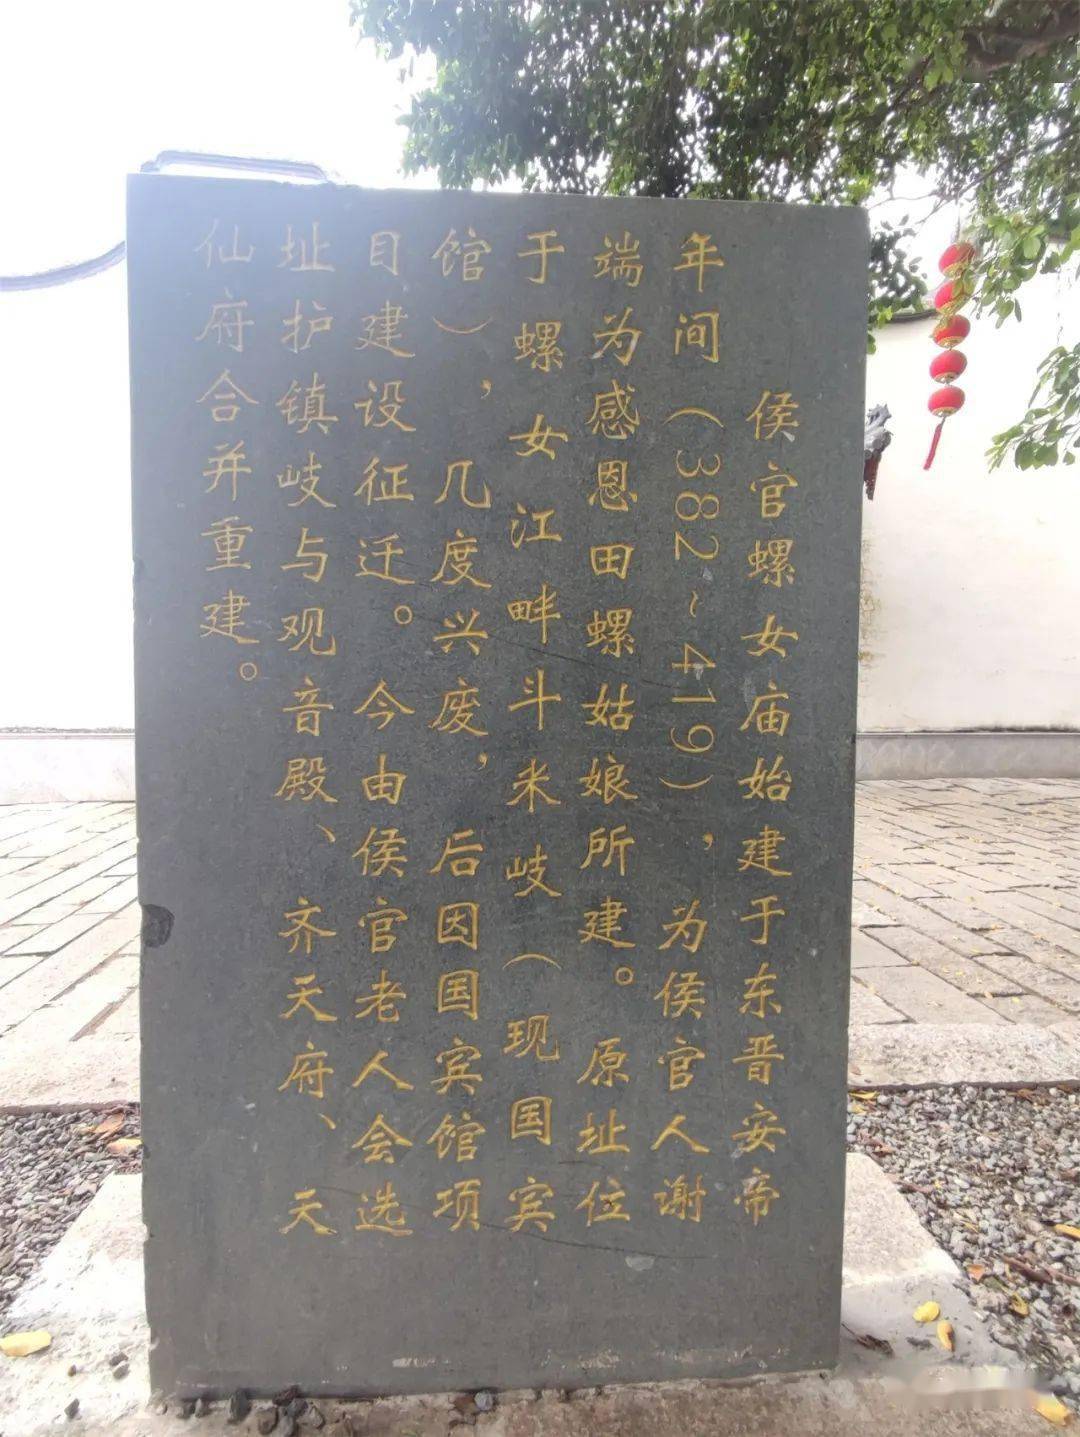 侯官螺女庙始建于东晋安帝
年间（382~419），为侯官人谢
端为感恩田螺姑娘所建。原址位
于螺女江畔斗米岐（现国宾
馆），几度兴废，后因国宾馆项
目建设征迁。今由侯官老人会选
址护镇岐与观音殿、齐天府、天
仙府合并重建。